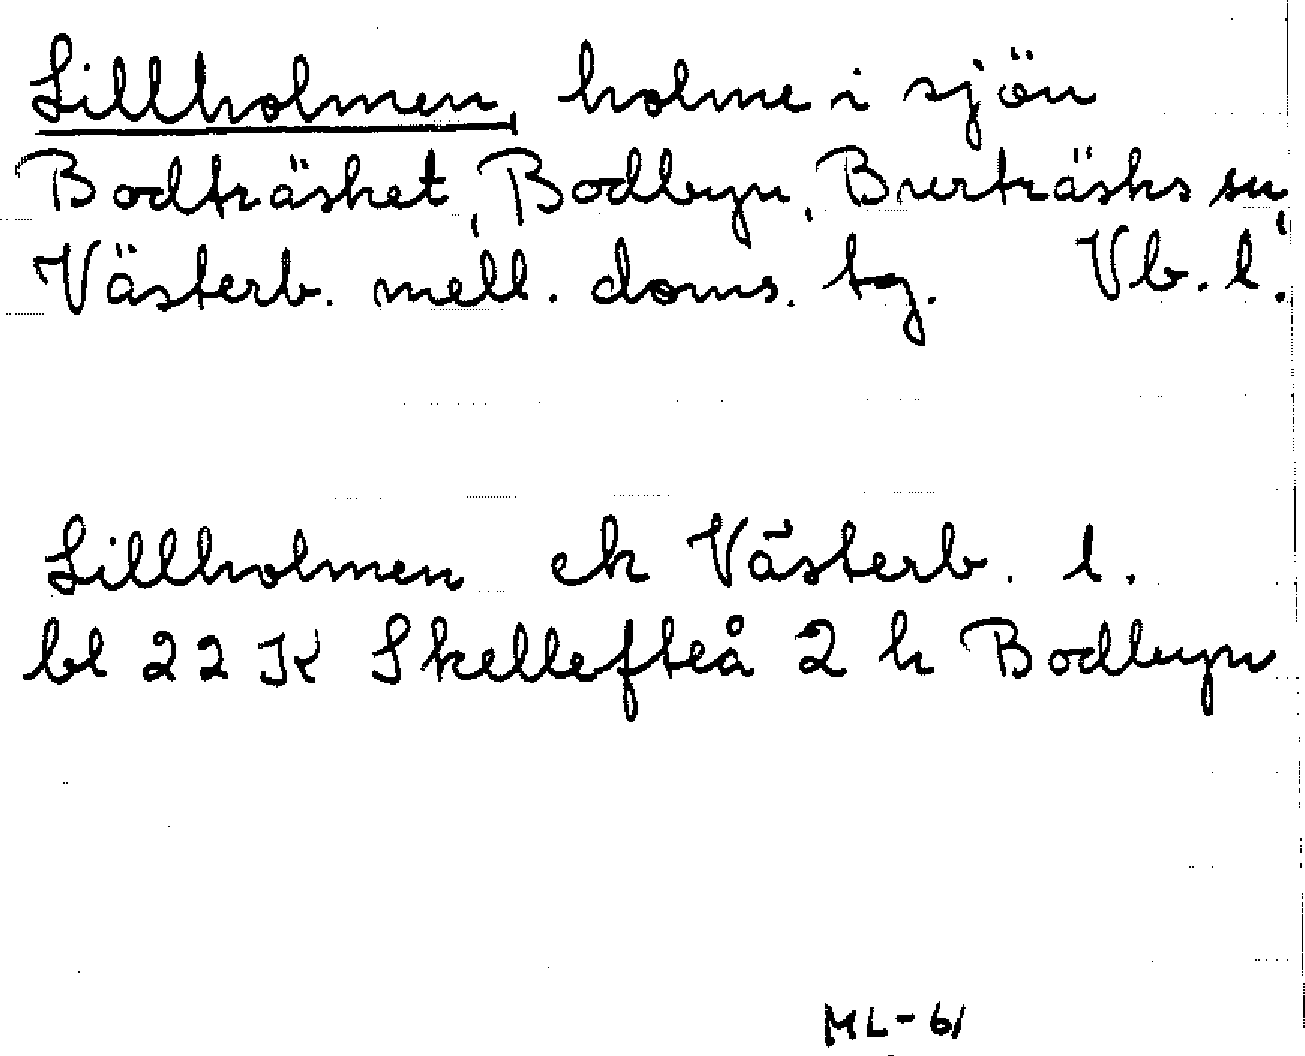 Lillholmen, holme i sjön
Bodträsket, Bodbyn, Burträsks sn,
Västerb. mell. doms. tg. Vb. l.
Lillholmen ek Västerb. l.
bl 22 K Skellefteå 2 h Bodbyn
ML-61